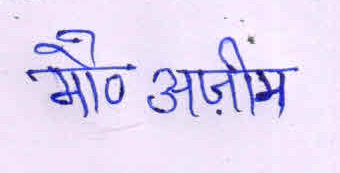 मो० अज़ीम